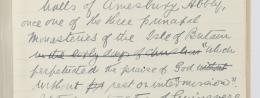 walls of Amesbury Abbey,
once one of the three principal
Monasteries of the Isle of Britain
in the early days of "which
perpetuated the praise of God
without rest or intermission".
of Guinevere